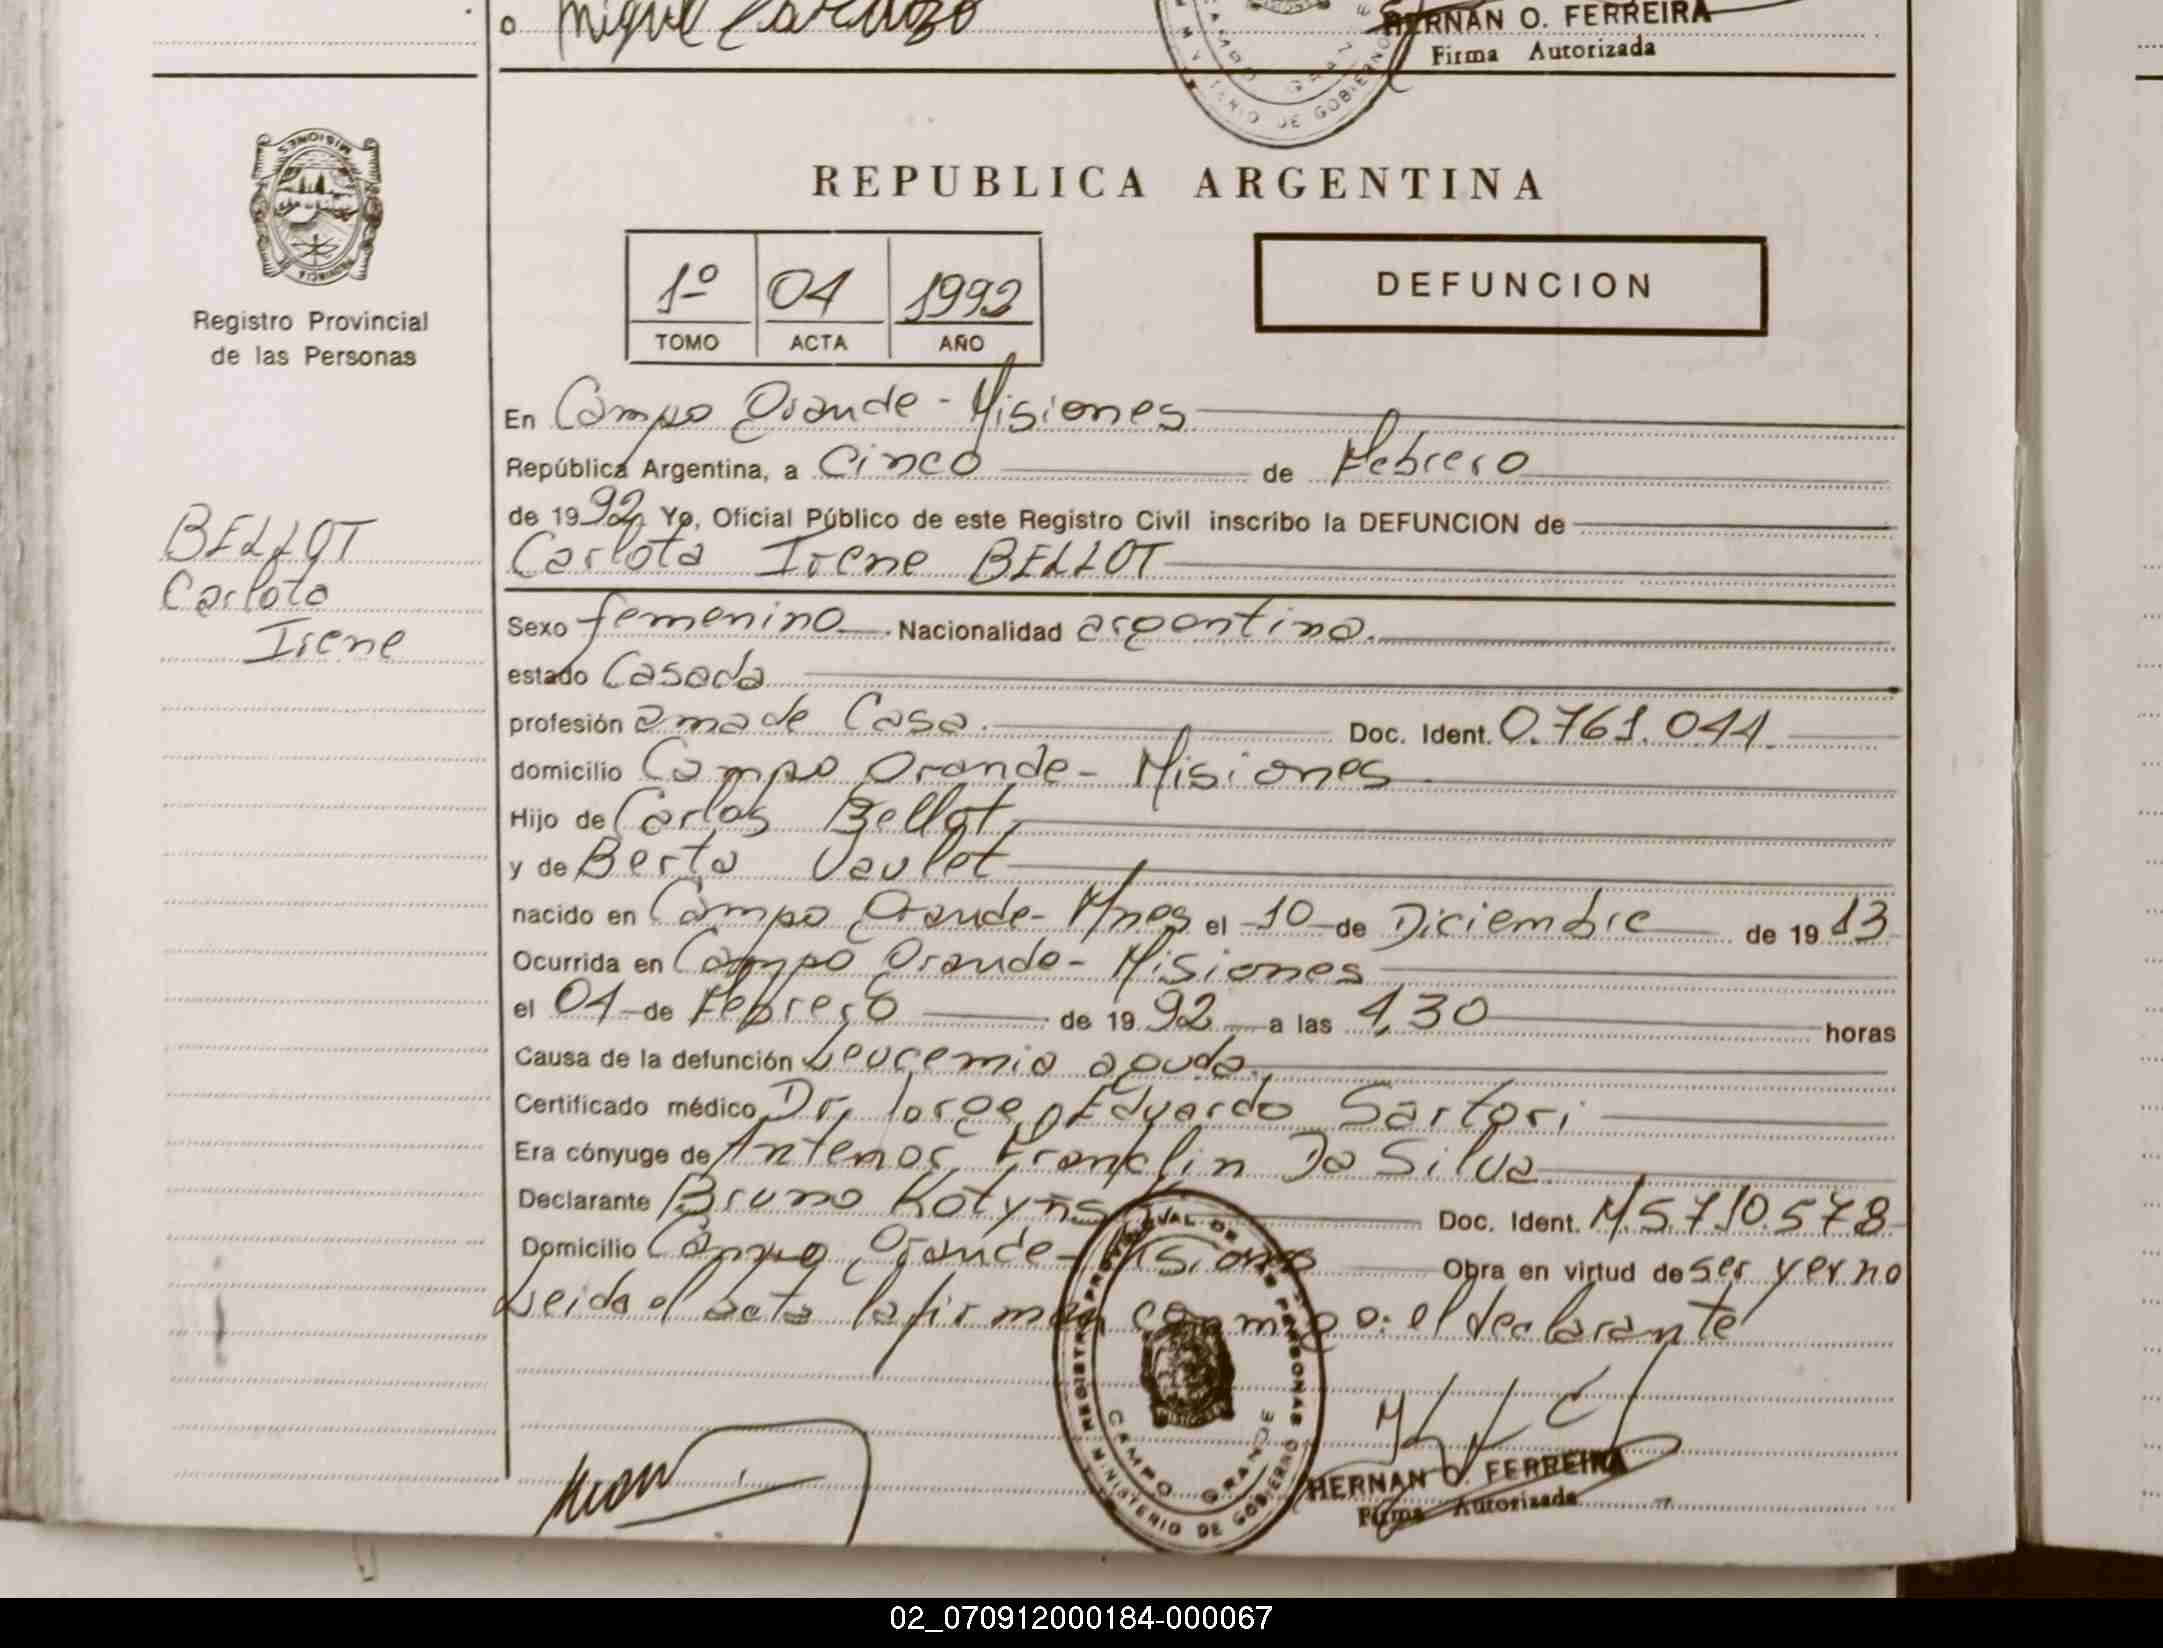 o Miguel Cardozo
HERNAN O. FERREIRA
Firma Autorizada
MINISTERIO DE GOBIERNO
MISIONES
PROVINCIA
Registro Provincial
de las Personas
REPUBLICA ARGENTINA
1º 04 1992
TOMO ACTA AÑO
DEFUNCION
En Campo Grande - Misiones
República Argentina, a Cinco de Febrero
de 1992 Yo, Oficial Público de este Registro Civil inscribo la DEFUNCION de
Carlota Irene BELLOT
BELLOT
Carlota
Irene
Sexo femenino. Nacionalidad argentina.
estado Casada
profesión ama de Casa. Doc. Ident. 0.761.044.
domicilio Campo Grande - Misiones
Hijo de Carlos Bellot,
y de Berta Vaulet
nacido en Campo Grande - Mnes el 10 de Diciembre de 1913
Ocurrida en Campo Grande - Misiones
el 04 de Febrero de 1992 a las 1,30 horas
Causa de la defunción Leucemia aguda.
Certificado médico Dr. Jorge Eduardo Sartori
Era cónyuge de Antenor Franclin Da Silva
Declarante Bruno Doc. Ident. M 5.710.578
Domicilio Campo Grande - Misiones Obra en virtud de ser yerno
Leida el acta la firman conmigo: el declarante
REGISTRO PROVINCIAL DE LAS PERSONAS
CAMPO GRANDE
MINISTERIO DE GOBIERNO
HERNAN O. FERREIRA
Firma Autorizada
02_070912000184-000067